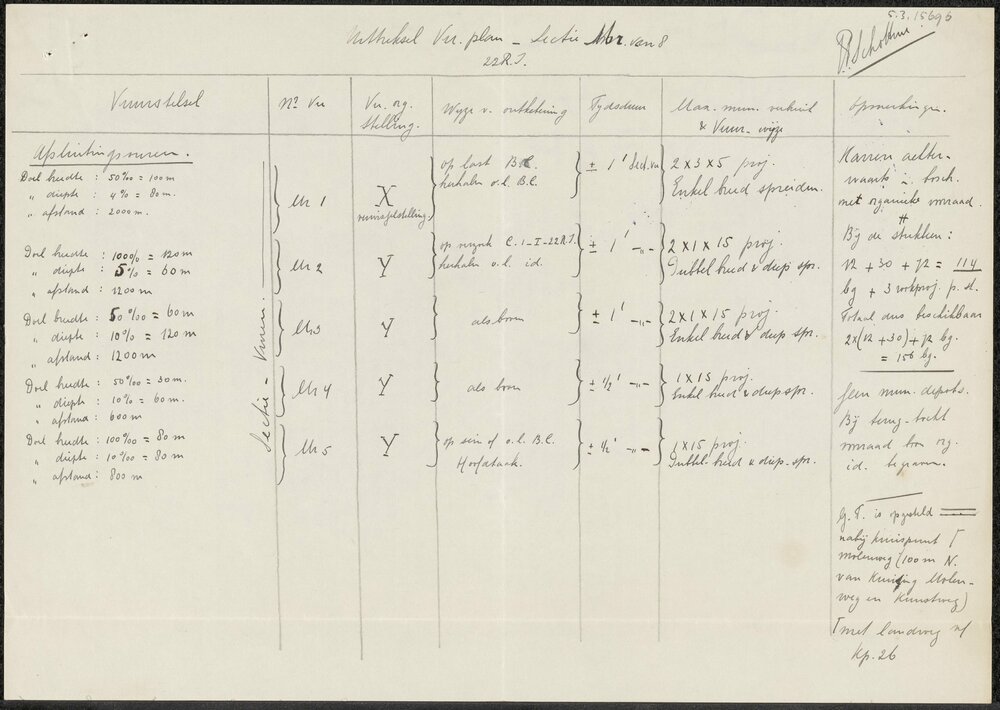 5.3.1569b
Uittreksel Vu. plan - Sectie Mr. van 8
22 R.I.
P. Scholten
Vuurstelsel
No Vu
Vu. org.
stelling.
Wijze v. ontketening
Tijdsduur
Max. mun. verbruik
& Vuur-wijze
Opmerkingen.
Afsluitingsvuren.
Sectie - Vuren
Doel breedte : 50‰ = 100 m
" diepte : 4% = 80 m.
" afstand : 2000 m.
Mr 1
X
vuurwisselstelling.
op last B.C.
herhalen o.l. B.C.
± 1' Sect. vu
2 x 3 x 5 proj.
Enkel breed spreiden.
Doel breedte : 100‰ = 120 m
" diepte : 5% = 60 m
" afstand : 1200 m
Mr 2
Y
op verzoek C. 1-I-22R.I.
herhalen o.l. id.
± 1' -„-
2 x 1 x 15 proj.
Dubbel breed & diep spr.
Doel breedte : 50‰ = 60 m
" diepte : 10% = 120 m
" afstand : 1200 m
Mr 3
Y
als boven
± 1' -„-
2 x 1 x 15 proj.
Enkel breed & diep spr.
Doel breedte : 50‰ = 30 m.
" diepte : 10% = 60 m.
" afstand : 600 m
Mr 4
Y
als boven
± ½' -„-
1 x 15 proj.
Enkel breed & diep spr.
Doel breedte : 100‰ = 80 m
" diepte : 10% = 80 m
" afstand : 800 m
Mr 5
Y
op sein of o.l. B.C.
Hoofdtaak.
± ½' -„-
1 x 15 proj.
Dubbel-breed & diep-spr.
Karren achter-
waarts in bosch
met organieke voorraad.
Bij de stukken:
12 + 30 + 72 = 114
bg + 3 rookproj. p. st.
Totaal dus beschikbaar
2x(12 + 30) + 72 bg.
= 156 bg.
Geen mun. depots.
Bij terug-tocht
voorraad bov org.
id. begraven.
G.T. is opgesteld
nabij kruispunt
Molenweg (100 m N.
van Kruising Molen-
weg en Kunstweg)
met landweg
Kp. 26